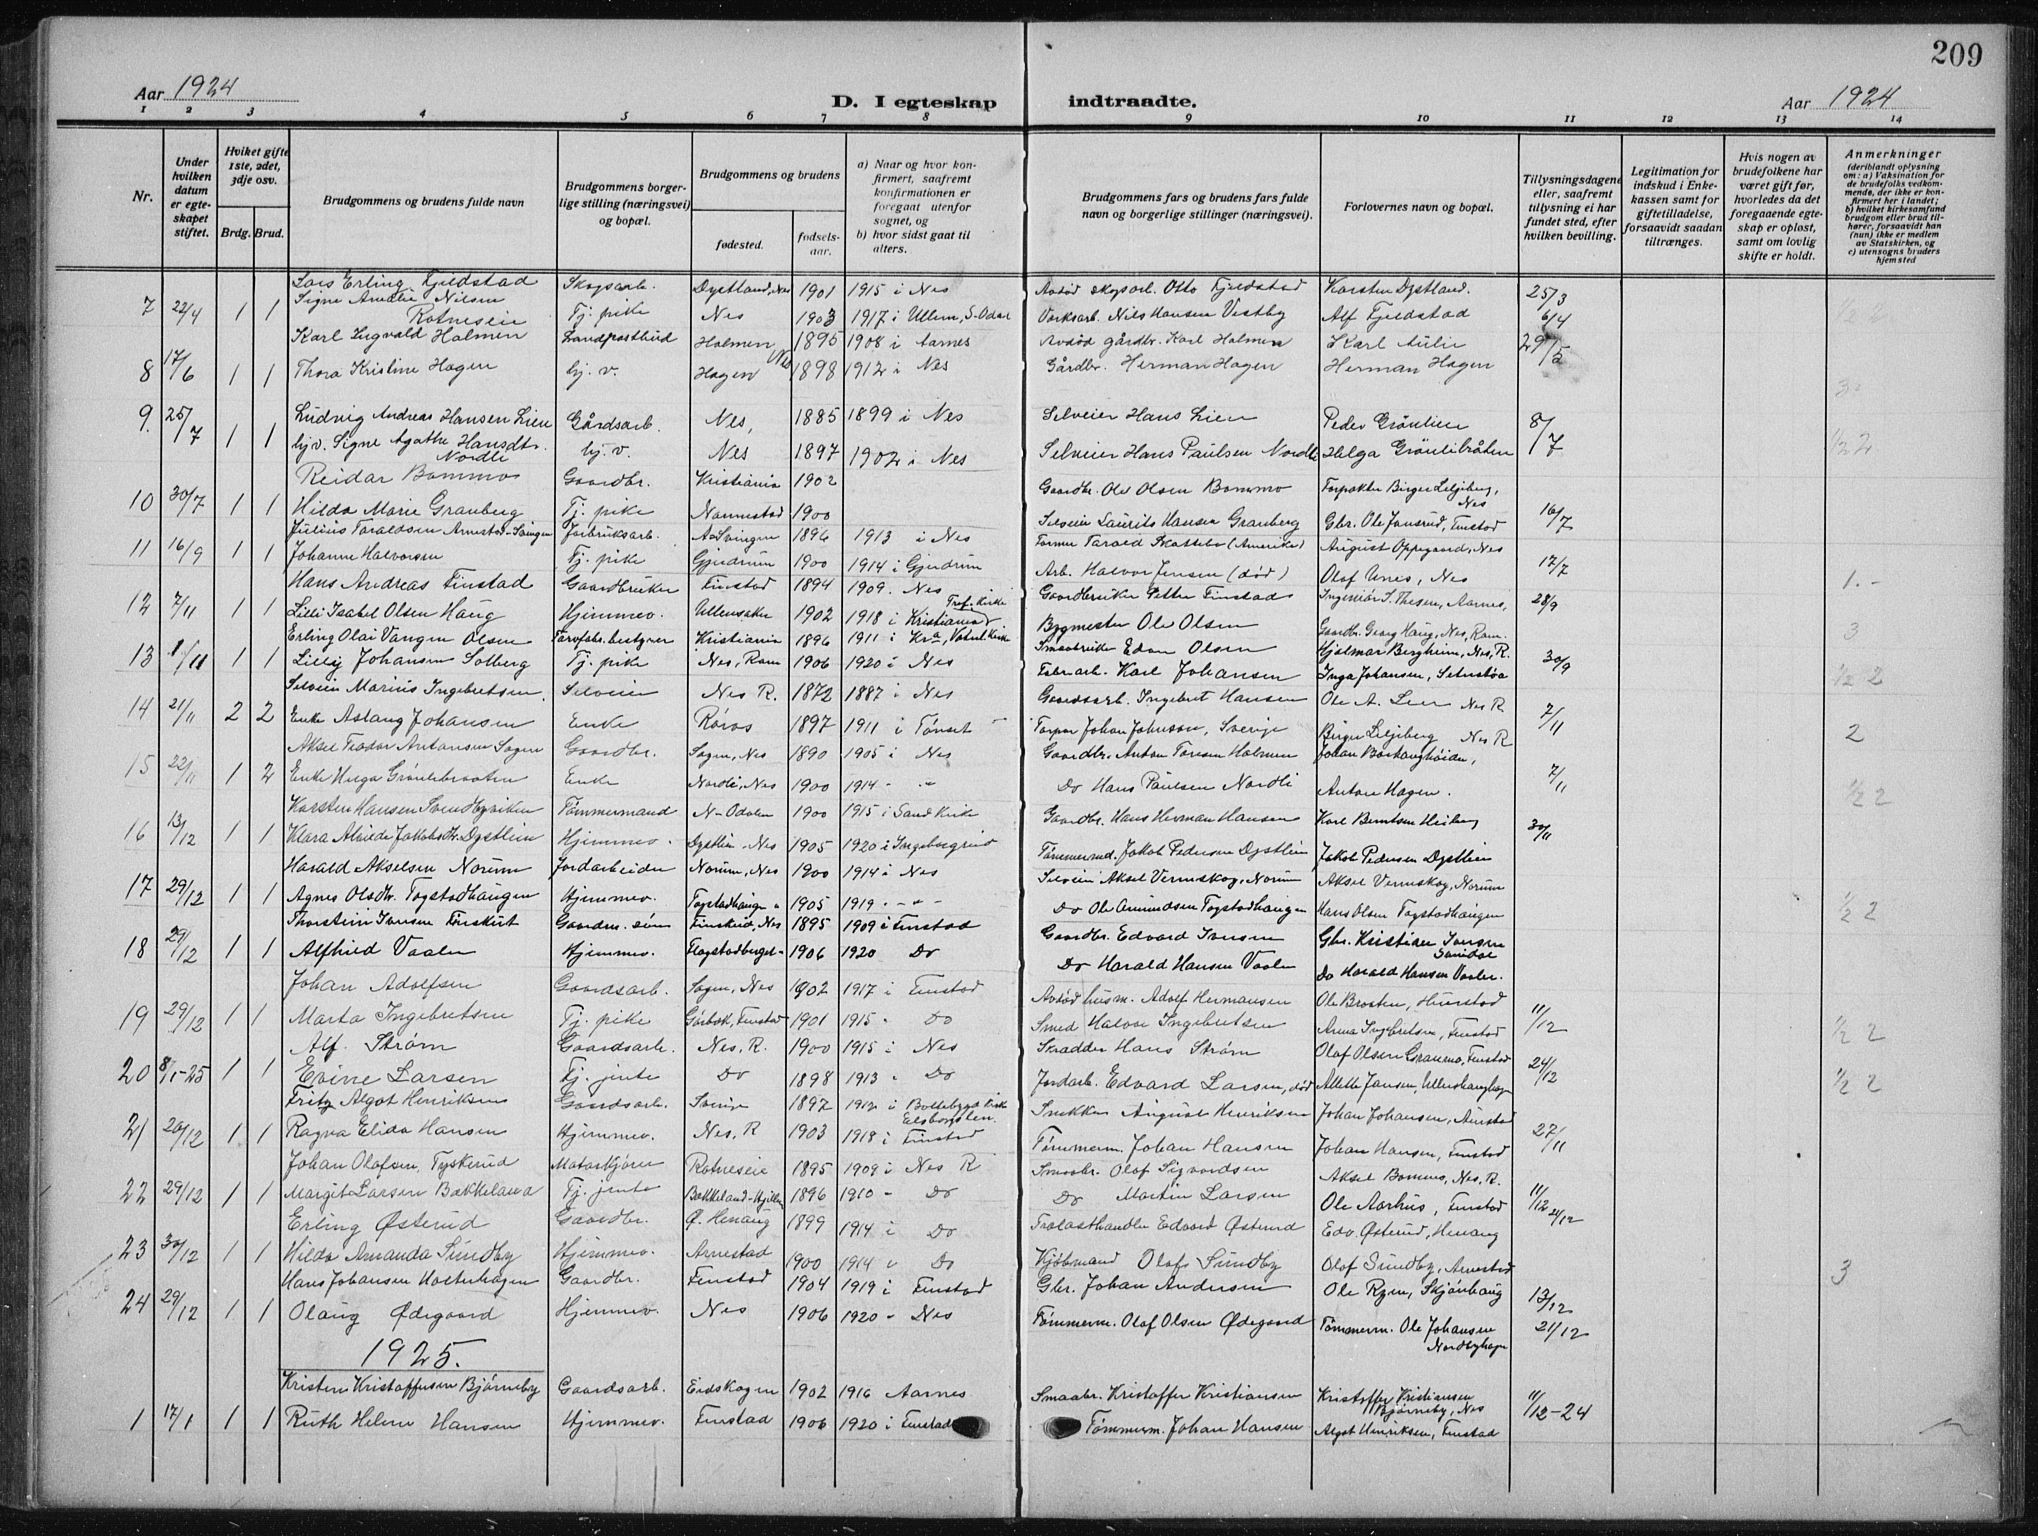 209
Aar 1924
D. I egteskap indtraadte.
Aar 1924
1 2 3 4 5 6 7 8 9 10 11 12 13 14
Nr.
Under hvilken datum er egteskapet stiftet.
Hviket gifte 1ste, 2det, 3dje osv.
Brdg. Brud.
Brudgommens og brudens fulde navn
Brudgommens borgerlige stilling (næringsvei) og bopæl.
Brudgommens og brudens
fødested.
fødselsaar.
a) Naar og hvor konfirmert, saafremt konfirmationen er foregaat utenfor sognet, og
b) hvor sidst gaat til alters.
Brudgommens fars og brudens fars fulde navn og borgerlige stillinger (næringsvei).
Forlovernes navn og bopæl.
Tillysningsdagene eller, saafremt tillysning ei har fundet sted, efter hvilken bevilling.
Legitimation for indskud i Enkekassen samt for giftetilladelse, forsaavidt saadan tiltrænges.
Hvis nogen av brudefolkene har været gift før, hvorledes da det foregaaende egteskap er opløst, samt om lovlig skifte er holdt.
Anmerkninger
(deriblandt oplysning om: a) Vaksination for de brudefolks vedkommende, der ikke er konfirmert her i landet; b) hvilket kirkesamfund brudgom eller brud tilhører, forsaavidt han (hun) ikke er medlem av Statskirken, og c) utensogns bruders hjemsted
Lars Erling Fjeldstad Skogsarb. Dystland, Nes 1901 1915 i Nes Avdød skogsarb. Otto Fjeldstad Karsten Dystland. 25/3
7 22/4 1 1 Signe Amalie Nilsen Rotneseie Tj. pike Nes 1903 1917 i Ullern, S-Odal Verksarb. Nils Hansen Vestby Alf Fjeldstad 6/4
Karl Ingvald Holmen Landpostbud Holmen 1895 1908 i Aarnes Avdød gårdbr. Karl Holmen Karl Aulie 29/5
8 17/6 1 1 Thora Kristine Hagen hj. v. Hagen Nes 1898 1912 i Nes Gårdbr. Herman Hagen Herman Hagen 3
9. 25/7 1 1 Ludvig Andreas Hansen Lien Gårdsarb. Nes, 1885 1899 i Nes Selveier Hans Lien Peder Grönlien 8/7
hjv. Signe Agathe Hansdtr. Nordli hj. v. Nes 1897 1902 i Nes Selveier Hans Paulsen Nordli Helga Grönlibråten 1/2 2
Reidar Bommo Gaardbr. Kristiania 1902 Gaardbr. Ole Olsen Bommo Forpakter Birger Liljeberg, Nes
10 30/7 1 1 Hilda Marie Granberg Tj. pike Nannestad 1900 Selveier Laurits Hansen Granberg Gbr. Ole Jonsrud, Finstad 16/7
Julius Taraldsen Arnestad-Svingen Jorbruksarb. A-Svingen 1896 1913 i Nes Farmer Tarald Skattebo (Amerika) August Oppegaard, Nes
11 16/9 1 1 Johanne Halvorsen Tj. pike Gjerdrum 1900 1914 i Gjerdrum Arb. Halvor Jensen (død) Olaf Unes, Nes 17/7
Hans Andreas Finstad Gaardbruker Finstad 1894 1909. Nes Gaardbruker Petter Finstad Ingeniør S. Thesen, Aarnes, 1.-
12 7/11 1 1 Lilli Isabel Olsen Haug Hjemmev. Ullensaker 1902 1918 i Kristiania Tref. kirke Bygmester Ole Olsen Gaardbr. Georg Haug, Nes, Rom. 28/9
Erling Olai Vangen Olsen Farvfabr. bestyrer Kristiania 1896 1911 i Kr.a Smaabruker Edon Olsen Hjalmar Bergheim, Nes, R. 3
13 1/11 1 1 Lilly Johansen Solberg Tj. pike Nes, Rom 1906 1920 i Nes Fabr arb. Karl Johansen Inga Johansen 30/9
Selveier Marius Ingebretsen Selveier Nes R. 1872 1887 i Nes Gaardsarb. Ingebret Hansen Ole A. Lier Nes R 1/2 2
14 21/11 2 2 Enke Aslaug Johansen Enke Røros 1897 1911 i Tønset Torpar Johan Johnsson, Sverige Birger Liljeberg Nes R 7/11 2
Aksel Teodor Antonsen Sagen Gaardbr. Sagen, Nes 1890 1905 i Nes Gaardbr. Anton Toresen Holmen
15 22/11 1 2 Enke Helga Grönlibraaten Enke Nordli, Nes 1900 1914 - " - Do Hans Paulsen Nordli Anton Hagen. 7/11
Karsten Hansen Svendbyviken Tømmermand N-Odalen 1900 1915 i Sand Kirke Gaardbr. Hans Herman Hansen Karl Berntsen 1/2 2
16 13/12 1 1 Klara Alvilde Jakobsdtr. Dystlien Hjemmev. Dystlien - Nes 1905 1920 i Ingeborgrud Tømmermd. Jakob Pedersen Dystlien Jakob Pedersen Dystlien 30/11
Harald Akselsen Norum Jordarbeider Norum, Nes 1900 1914 i Nes Selveier Aksel Vermskog, Norum Aksel Vermskog, Norum
17 29/12 1 1 Agnes Olsdtr. Togstadhaugen Hjemmev. Togstadhaugen " 1905 1919 - " - Do Ole Amundsen Togstadhaugen Hans Olsen Togstadhaugen 1/2 2
Thorstein Iversen Finskut Gaardm. søn Finskud, Nes 1895 1909 i Finstad Gaardbr. Edvard Iversen Gbr. Kristian Iversen
18 29/12 1 1 Alfhild Vaaler Hjemmev. Flagstadberget - 1906 1920 Do Do Harald Hansen Vaaler Do Harald Hansen Vaaler.
Johan Adolfsen Gaardsarb. Sagen, Nes 1902 1917 i Finstad Avdød husm. Adolf Hermansen Ole Brosten, Finstad
19 29/12 1 1 Marta Ingebretsen Tj. pike Finstad 1901 1915 - Do Smed Halvor Ingebretsen Anna Ingebretsen, Finstad 11/12 1/2 2
Alf. Strøm Gaardsarb. Nes, R. 1900 1915 i Nes Skrædder Hans Strøm Olaf Olsen Granmo, Finstad
20 8/1-25 1 1 Evine Larsen Tj. jente Do 1898 1913 " Do Jordarb. Edvard Larsen, død Alette Jansen 24/12 1/2 2
Fritz Algot Henriksen Gaardsarb. Sverige 1897 1912 i Bottebygd Kirke Elsborgslen. Snekker August Henriksen Johan Johansen, Aurstad
21 20/12 1 1 Ragna Elida Hansen Hjemmev. Nes, R 1903 1918 i Finstad Tømmerm. Johan Hansen Johan Hansen, Finstad 27/11
Johan Olafsen, Tyskerud Motorkjører Rotneseie 1895 1909 i Nes R Smaabr. Olaf Sigvardsen Aksel Bommen, Nes, R.
22 29/12 1 1 Margit Larsen Bækkeland Tj. jente Bækkeland 1896 1910 - Do Do Martin Larsen Ole Aarhus, Finstad 11/12 21/12
Erling Østerud Gaardbr. Ø. Henaug 1899 1914 i Do Trælasthandler Edvard Østerud Edv. Østerud, Henaug
23 30/12 1 1 Hilda Amanda Sundby Hjemmev. Arnestad 1900 1914 " Do Kjøbmand Olaf Sundby Olaf Sundby, Arnestad 3
Hans Johansen Holterhagen Gaardbr. Finstad 1904 1919 i Finstad Gbr. Johan Andersen Ole Ryen, Skjønhaug 13/12
24 29/12 1 1 Olaug Ødegaard Hjemmev. Nes 1906 1920 - Nes Tømmerm. Olaf Olsen Ødegaard Tømmerm. Ole Johansen Nordbyhagen 21/12
1925.
Kristen Kristoffersen Bjørneby Gaardsarb. Eidskogen 1902 1916 Aarnes Smaabr. Kristoffer Kristiansen Kristoffer Kristiansen Bjørneby, Nes 11/12-24
1 17/1 1 1 Ruth Helene Hansen Hjemmev. Finstad 1906 1920 i Finstad Tømmerm. Johan Hansen Algot Henriksen, Finstad